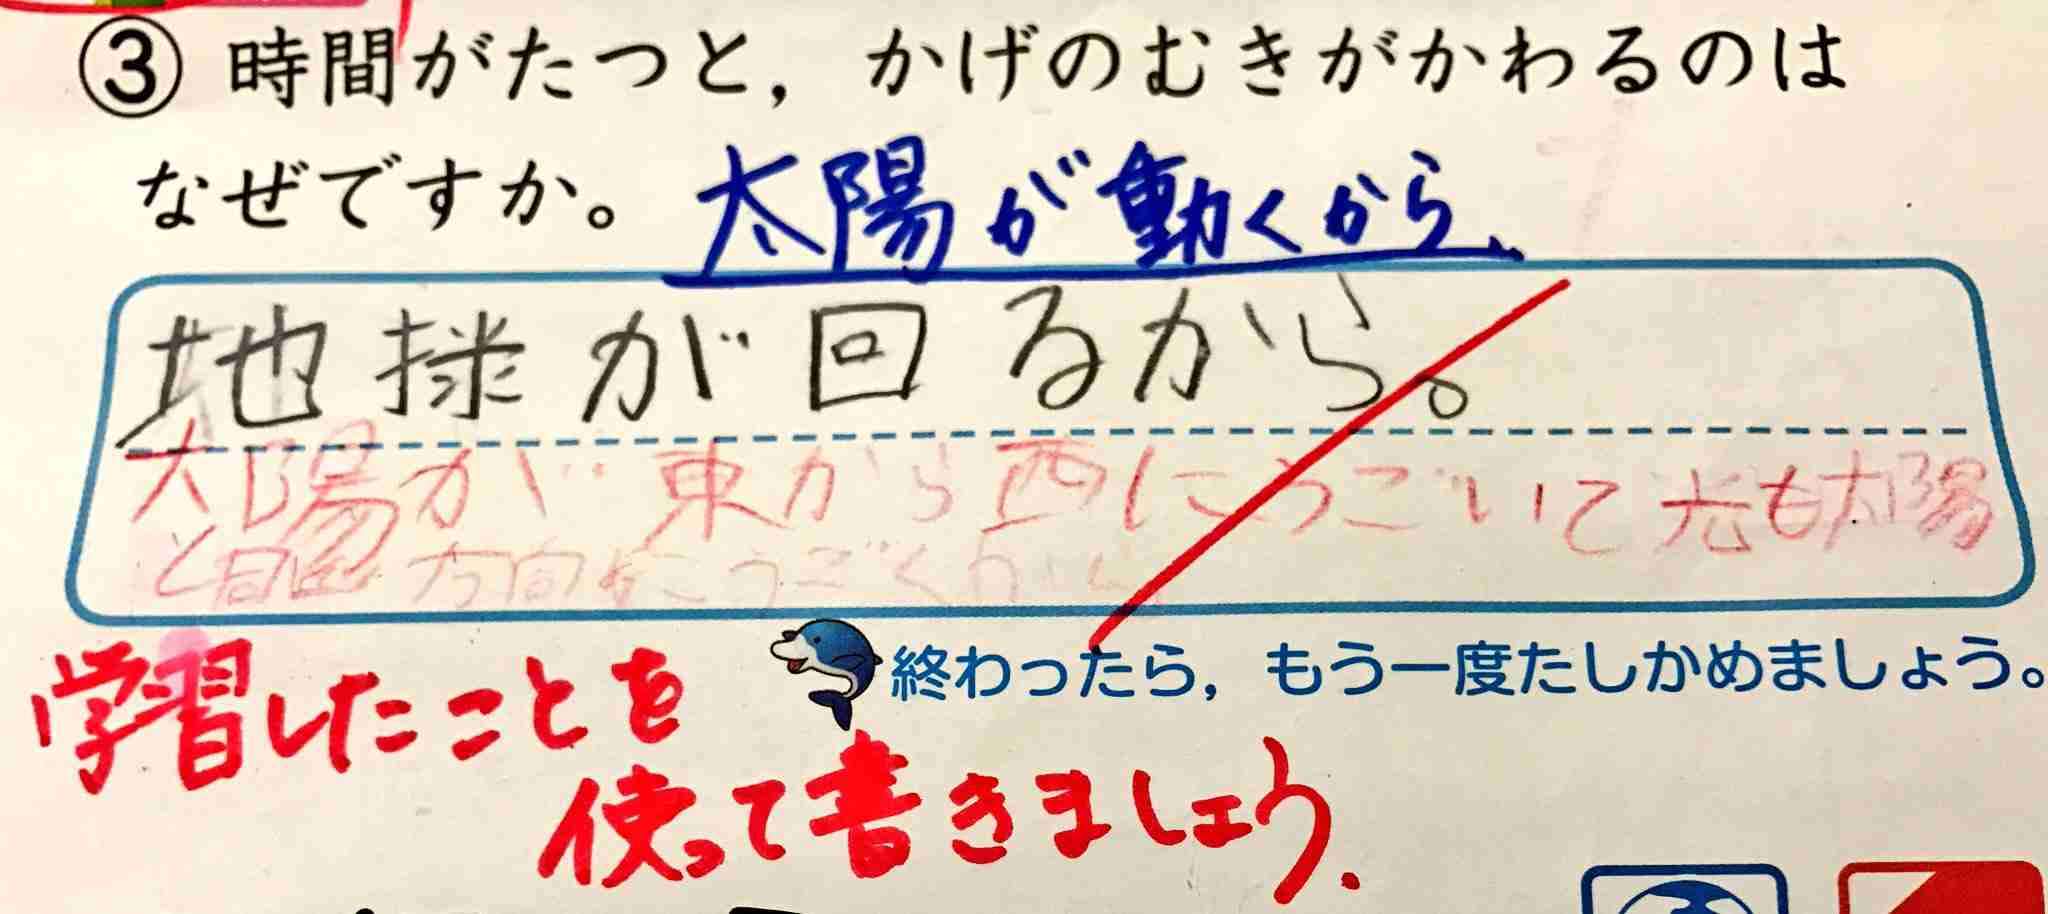 ③ 時間がたつと，かげのむきがかわるのは
なぜですか。
太陽が動くから、
地球が回るから。
太陽が東から西にうごいて光も太陽
と同じ方向にうごくから
終わったら，もう一度たしかめましょう。
学習したことを
使って書きましょう．